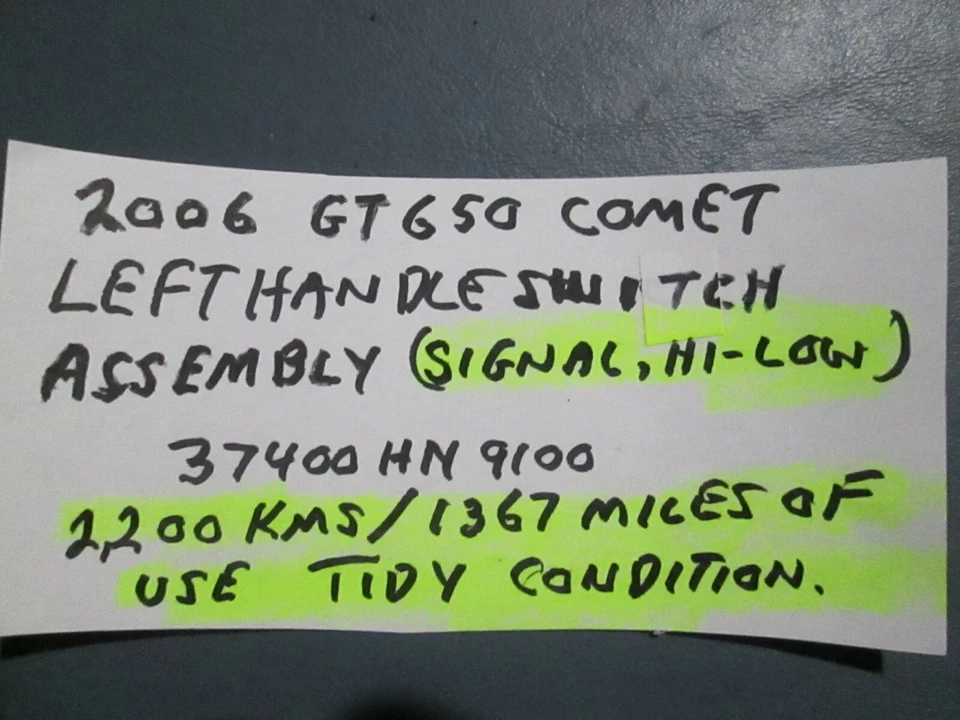 2006 GT650 COMET
LEFT HANDLE SWITCH
ASSEMBLY (SIGNAL, HI-LOW)
37400 HN 9100
2,200 KMS/1367 MILES OF
USE TIDY CONDITION.